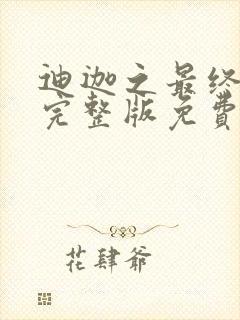 迪迦之最终
完整版免费
花肆爷